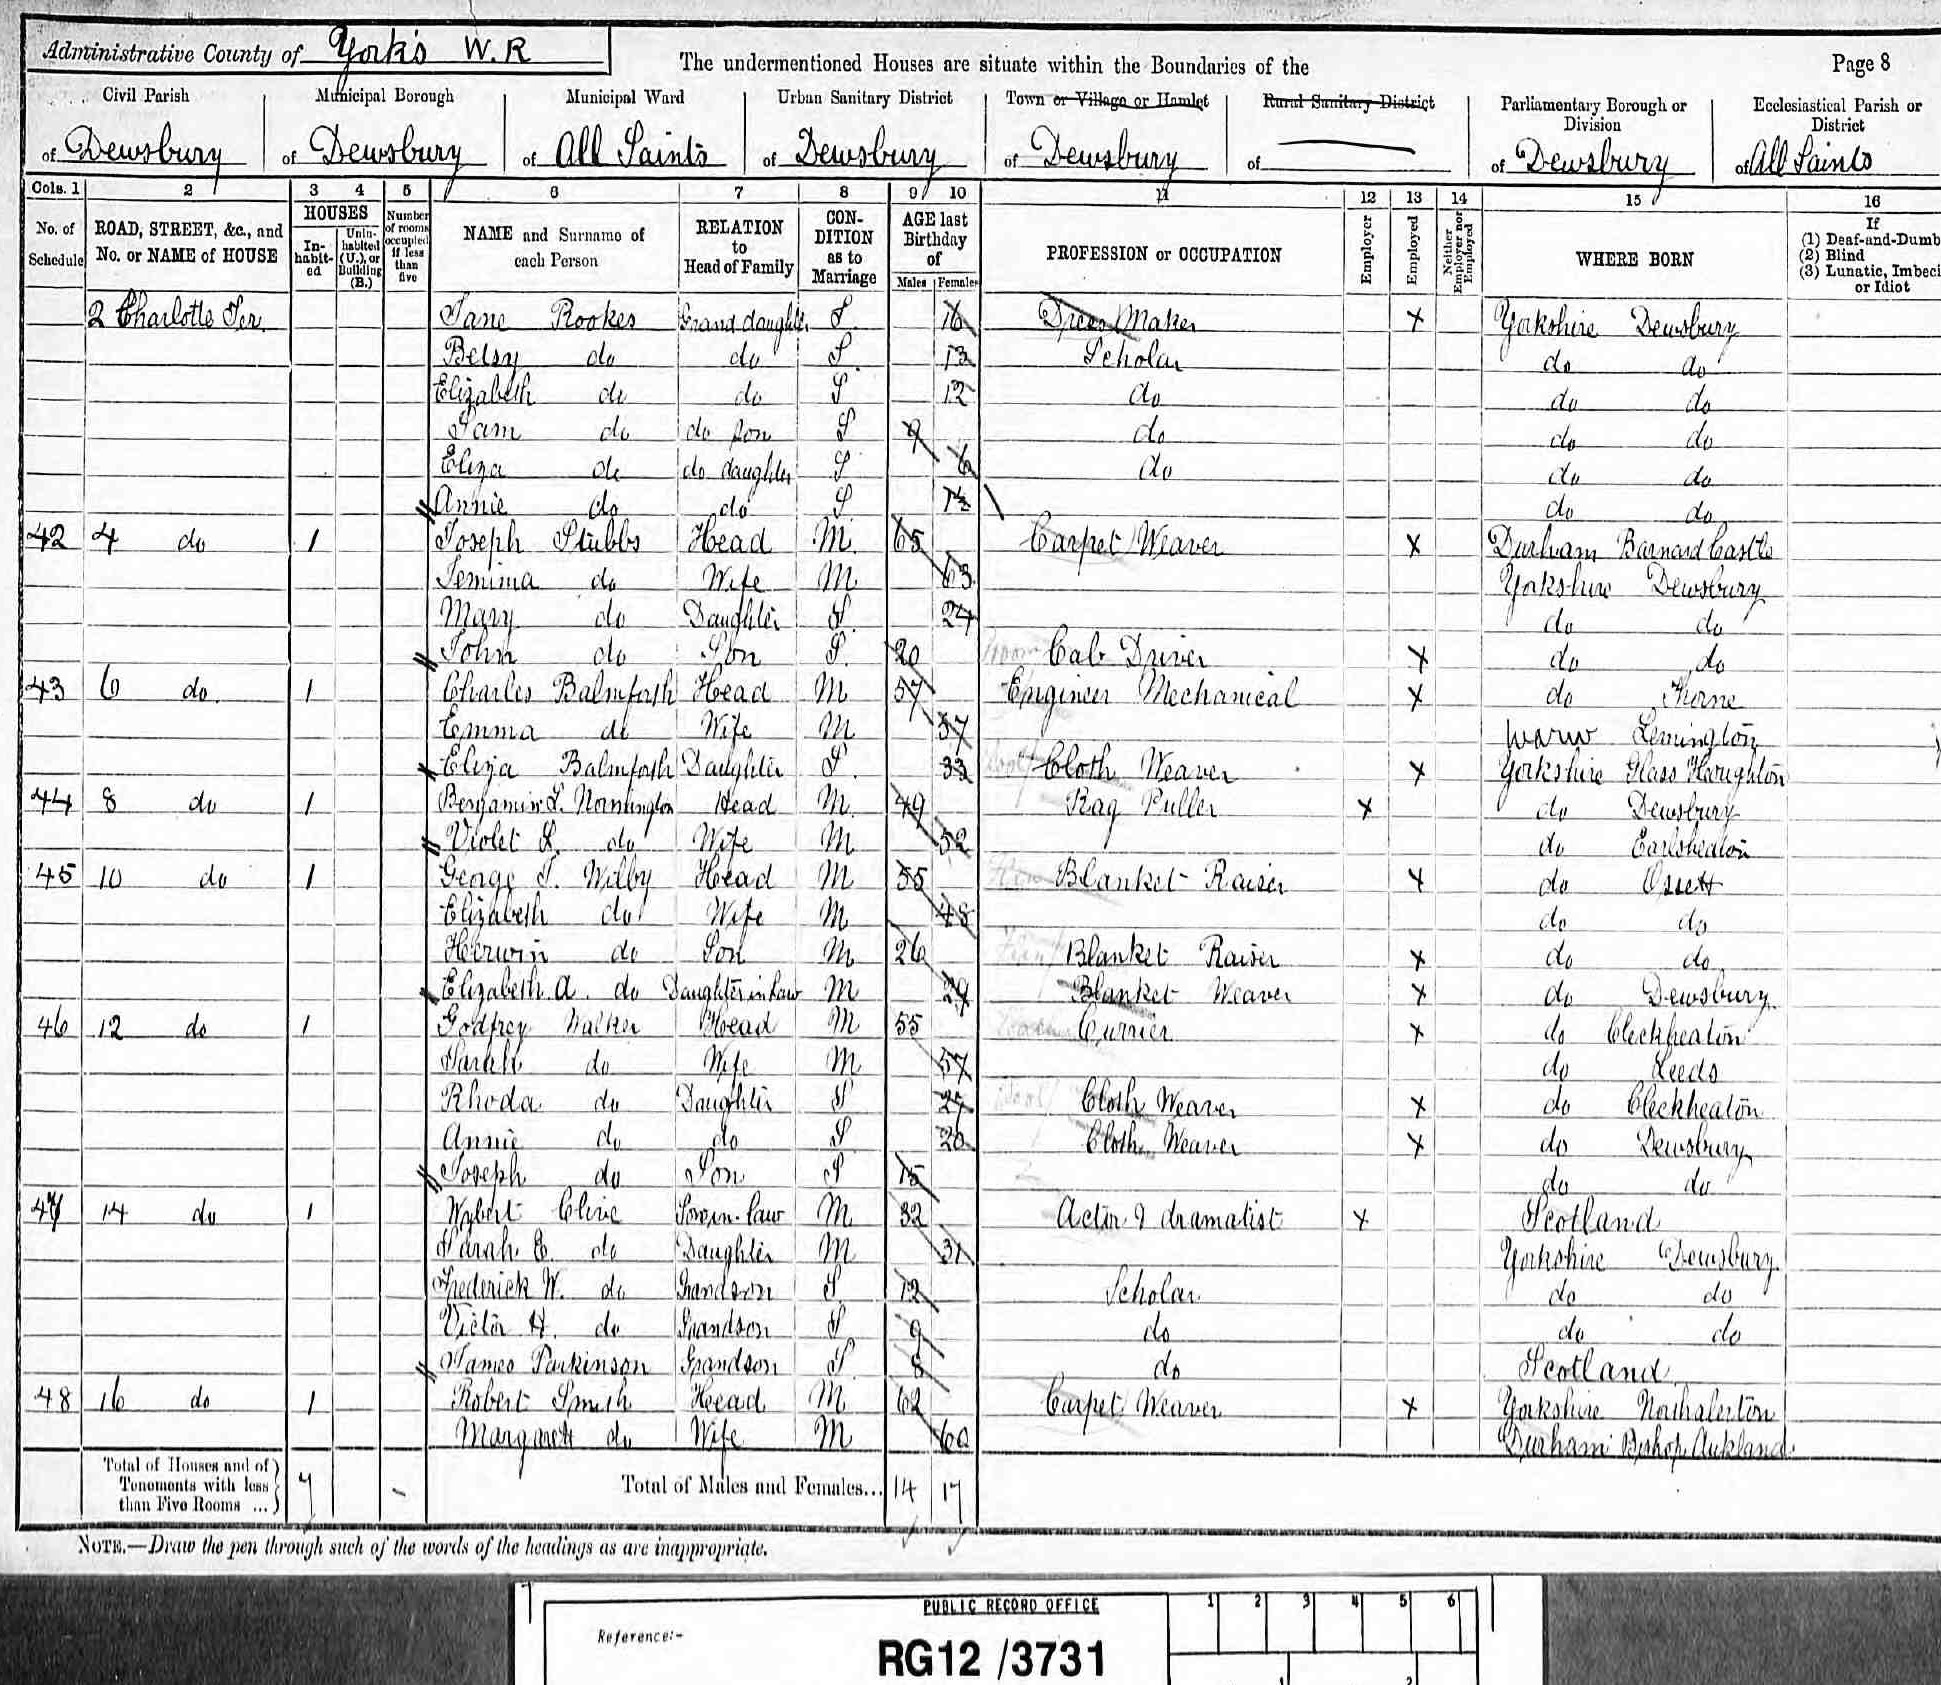 Administrative County of York's W.R
The undermentioned Houses are situate within the Boundaries of the
Page 8
Civil Parish Municipal Borough Municipal Ward Urban Sanitary District Town or Village or Hamlet Rural Sanitary District Parliamentary Borough or Division Ecclesiastical Parish or District
of Dewsbury of Dewsbury of All Saints of Dewsbury of Dewsbury of of Dewsbury of All Saints
Cols. 1 2 3 4 5 6 7 8 9 10 11 12 13 14 15 16
No. of Schedule ROAD, STREET, &c., and No. or NAME of HOUSE HOUSES In-habit-ed Unin-habited (U.), or Building (B.) Number of rooms occupied if less than five NAME and Surname of each Person RELATION to Head of Family CON-DITION as to Marriage AGE last Birthday of Males Females PROFESSION or OCCUPATION Employer Employed Neither Employer nor Employed WHERE BORN If (1) Deaf-and-Dumb (2) Blind (3) Lunatic, Imbeci or Idiot
2 Charlotte Ter. Jane Rookes Grand daughter S 16 Dress Maker X Yorkshire Dewsbury
Betsy do do S 13 Scholar do do
Elizabeth do do S 12 do do do
Sam do do son S 9 do do do
Eliza do do daughter S 6 do do do
Annie do do S do do
42 4 do 1 Joseph Stubbs Head M 65 Carpet Weaver X Durham Barnard Castle
Jemima do Wife M 63 Yorkshire Dewsbury
Mary do Daughter S 24 do do
John do Son S. 20 Cab Driver X do do
43 6 do 1 Charles Balmforth Head M 57 Engineer Mechanical X do Thorne
Emma do Wife M 57 Warw Lemington
Eliza Balmforth Daughter S. 33 Cloth Weaver X Yorkshire Glass Houghton
44 8 do 1 Benjamin L. Normington Head M 49 Rag Puller X do Dewsbury
Violet L. do Wife M 52 do Earlsheaton
45 10 do 1 George T. Wilby Head M 55 Blanket Raiser X do Ossett
Elizabeth do Wife M 48 do do
Herwin do Son M 26 Blanket Raiser X do do
Elizabeth A. do Daughter in Law M 29 Blanket Weaver X do Dewsbury
46 12 do 1 Godfrey Walker Head M 55 Currier X do Cleckheaton
Sarah do Wife M 57 do Leeds
Rhoda do Daughter S 27 Cloth Weaver X do Cleckheaton
Annie do do S 20 Cloth Weaver X do Dewsbury
Joseph do Son S 15 do do
47 14 do 1 Wybert Clive Son in Law M 32 Actor & dramatist X Scotland
Sarah E. do Daughter M 31 Yorkshire Dewsbury
Frederick W. do Grandson S 12 Scholar do do
Victor H. do Grandson S 9 do do do
James Parkinson Grandson S 8 do Scotland
48 16 do 1 Robert Smith Head M 62 Carpet Weaver X Yorkshire Northalerton
Margarett do Wife M 60 Durham Bishop Aukland
Total of Houses and of Tenements with less than Five Rooms ... 7 - Total of Males and Females... 14 17
NOTE.—Draw the pen through such of the words of the headings as are inappropriate.
PUBLIC RECORD OFFICE
1 2 3 4 5 6
Reference:-
RG12 /3731
1 2